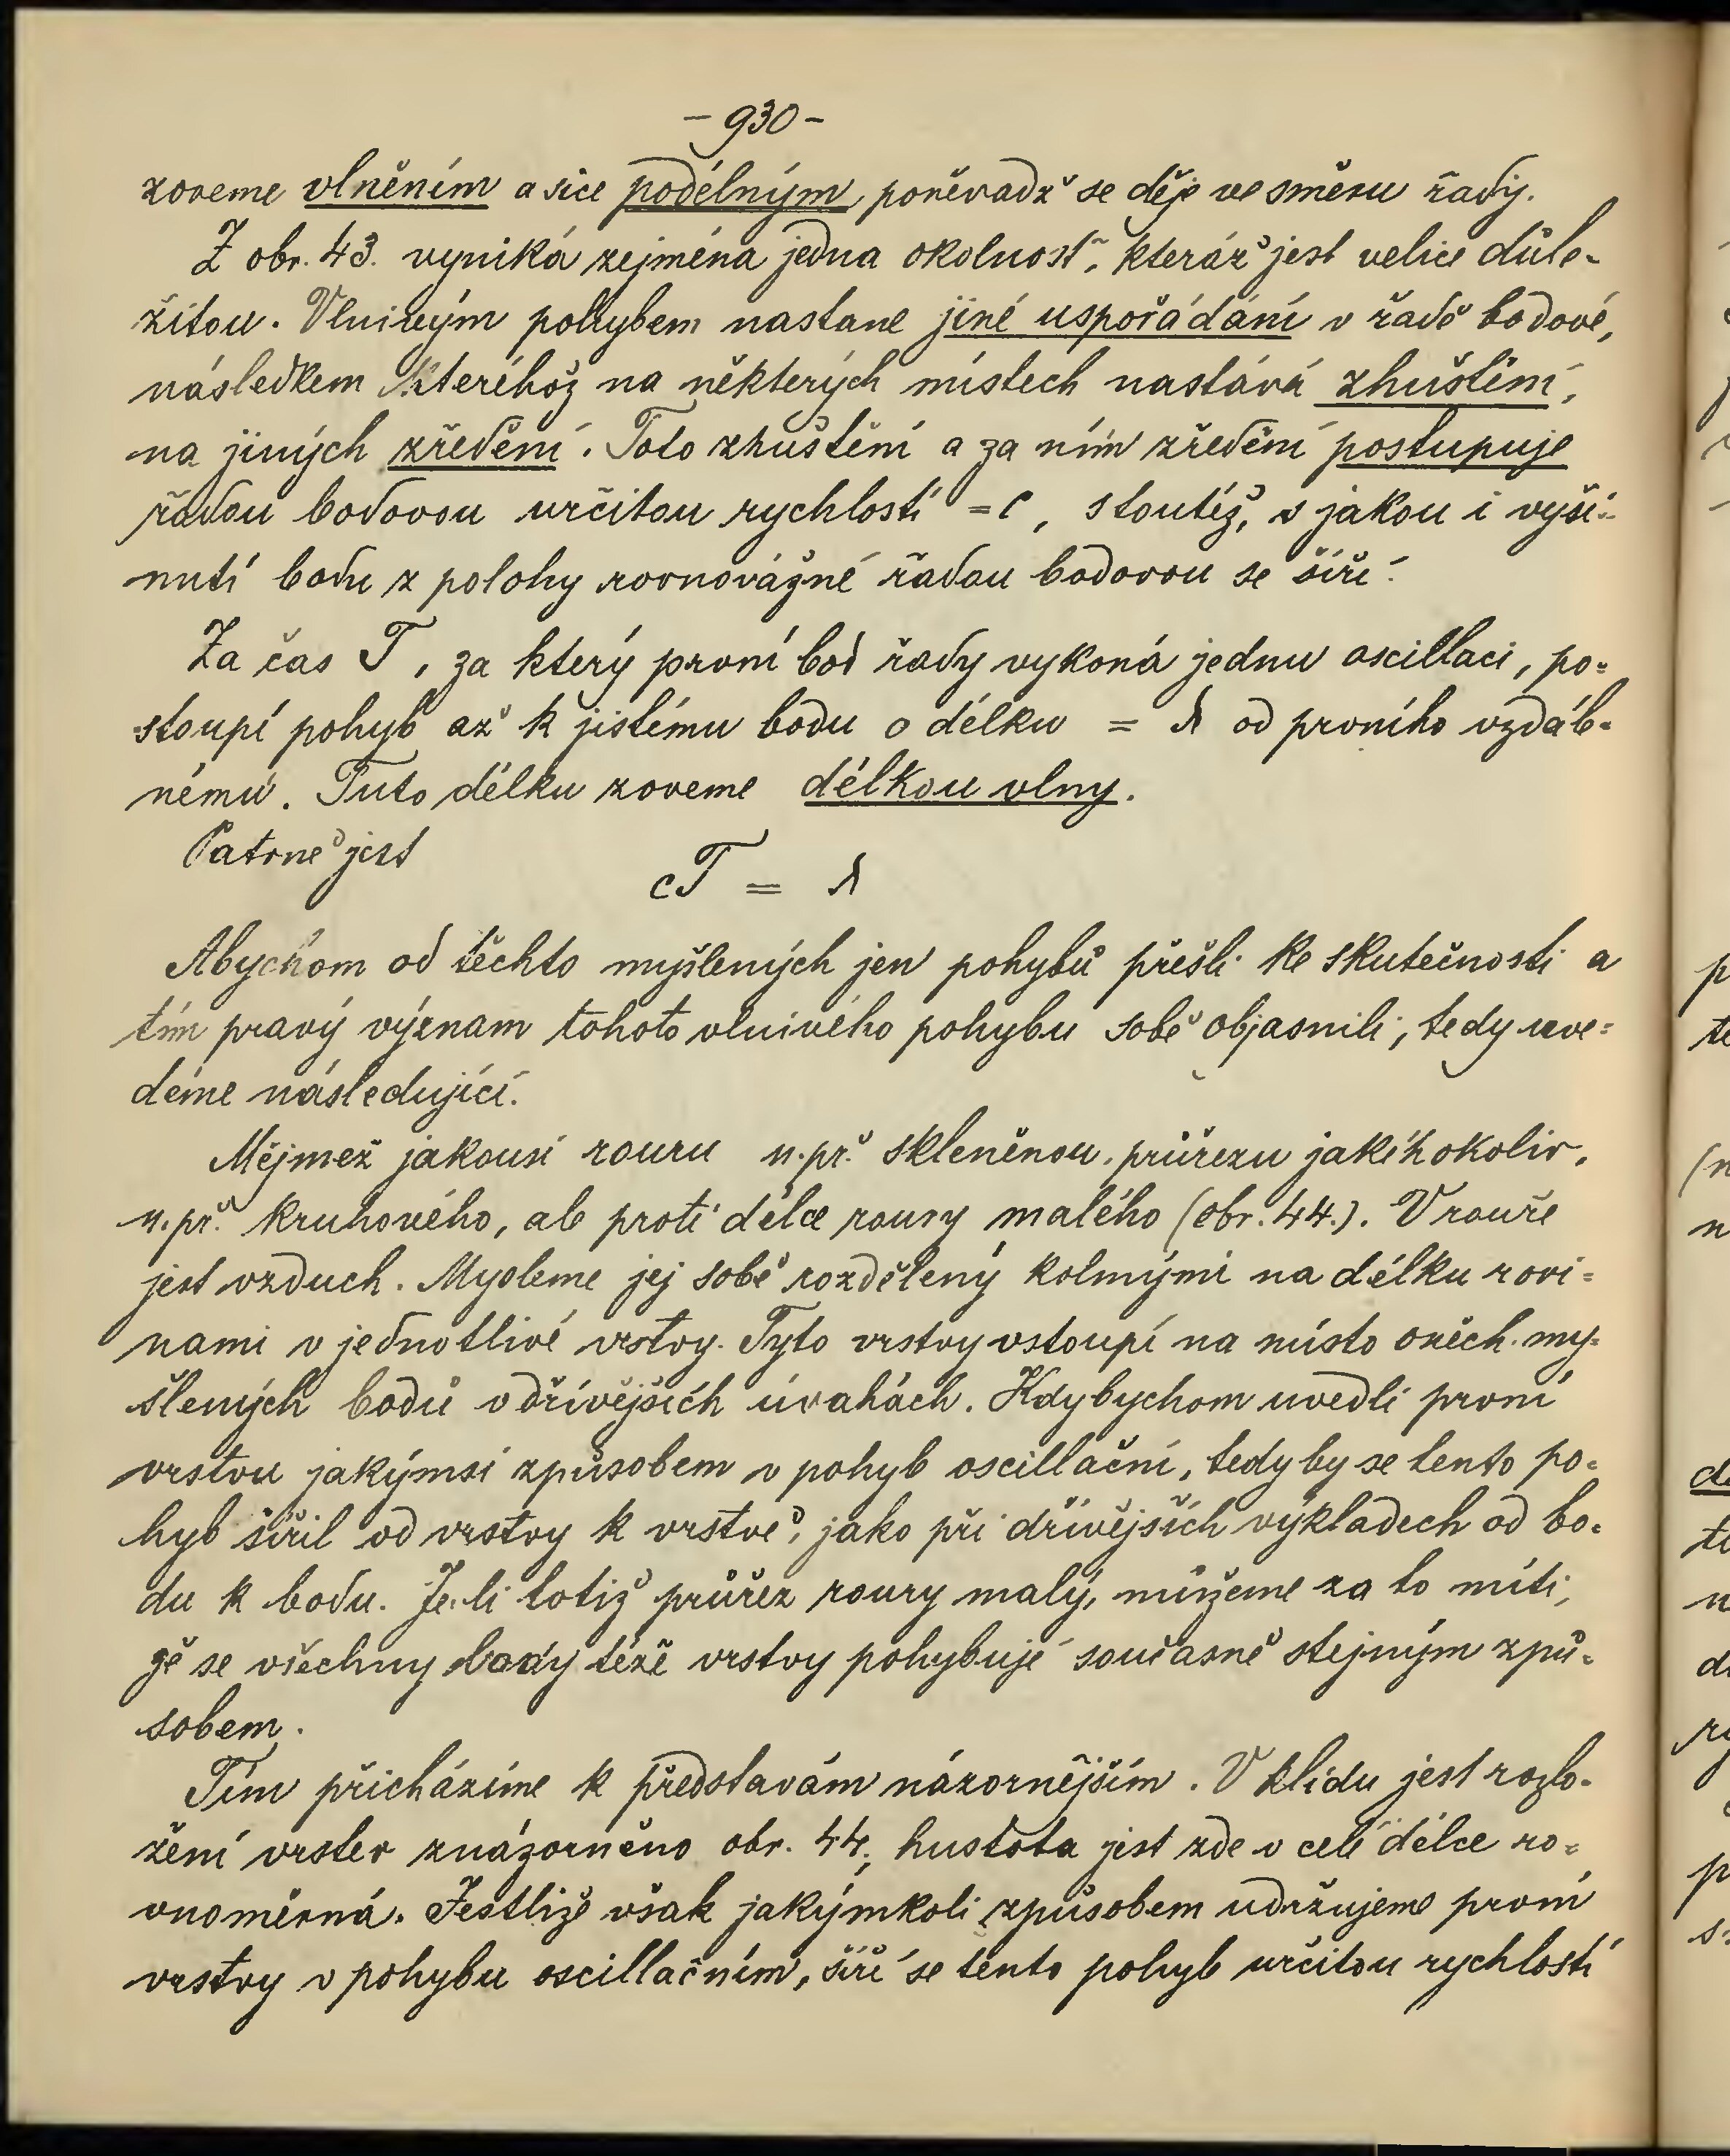 - 930 -
zoveme vlněním a sice podélným, poněvadž se děje ve směru řady.
Z obr. 43. vyniká zejména jedna okolnosť, kteráž jest velice důle-
žitou. Vlnivým pohybem nastane jiné uspořádání v řadě bodové,
následkem kteréhož na některých místech nastává zhuštění,
na jiných zředění. Toto zhuštění a za ním zředění postupuje
řadou bodovou určitou rychlostí = c, s toutéž, s jakou i vyši-
nutí bodu z polohy rovnovážné řadou bodovou se šíří.
Za čas T, za který první bod řady vykoná jednu oscillaci, po-
stoupí pohyb až k jistému bodu o délku = λ od prvního vzdále-
nému. Tuto délku zoveme délkou vlny.
Patrně jest
cT = λ
Abychom od těchto myšlených jen pohybů přešli ke skutečnosti a
tím pravý význam tohoto vlnivého pohybu sobě objasnili, tedy uve-
deme následující.
Mějmež jakousi rouru n.př. skleněnou, průřezu jakéhokoliv,
n.př. kruhového, ale proti délce roury malého (obr. 44.). V rouře
jest vzduch. Mysleme jej sobě rozdělený kolmými na délku rovi-
nami v jednotlivé vrstvy. Tyto vrstvy vstoupí na místo oněch my-
šlených bodů v dřívějších úvahách. Kdybychom uvedli první
vrstvu jakýmsi způsobem v pohyb oscillační, tedy by se tento po-
hyb šířil od vrstvy k vrstvě, jako při dřívějších výkladech od bo-
du k bodu. Je-li totiž průřez roury malý, můžeme za to míti,
že se všechny body téže vrstvy pohybují současně stejným způ-
sobem.
Tím přicházíme k představám názornějším. V klidu jest rozlo-
žení vrstev znázorněno obr. 44; hustota jest zde v celé délce ro-
vnoměrná. Jestliže však jakýmkoli způsobem udržujeme první
vrstvy v pohybu oscillačním, šíří se tento pohyb určitou rychlostí